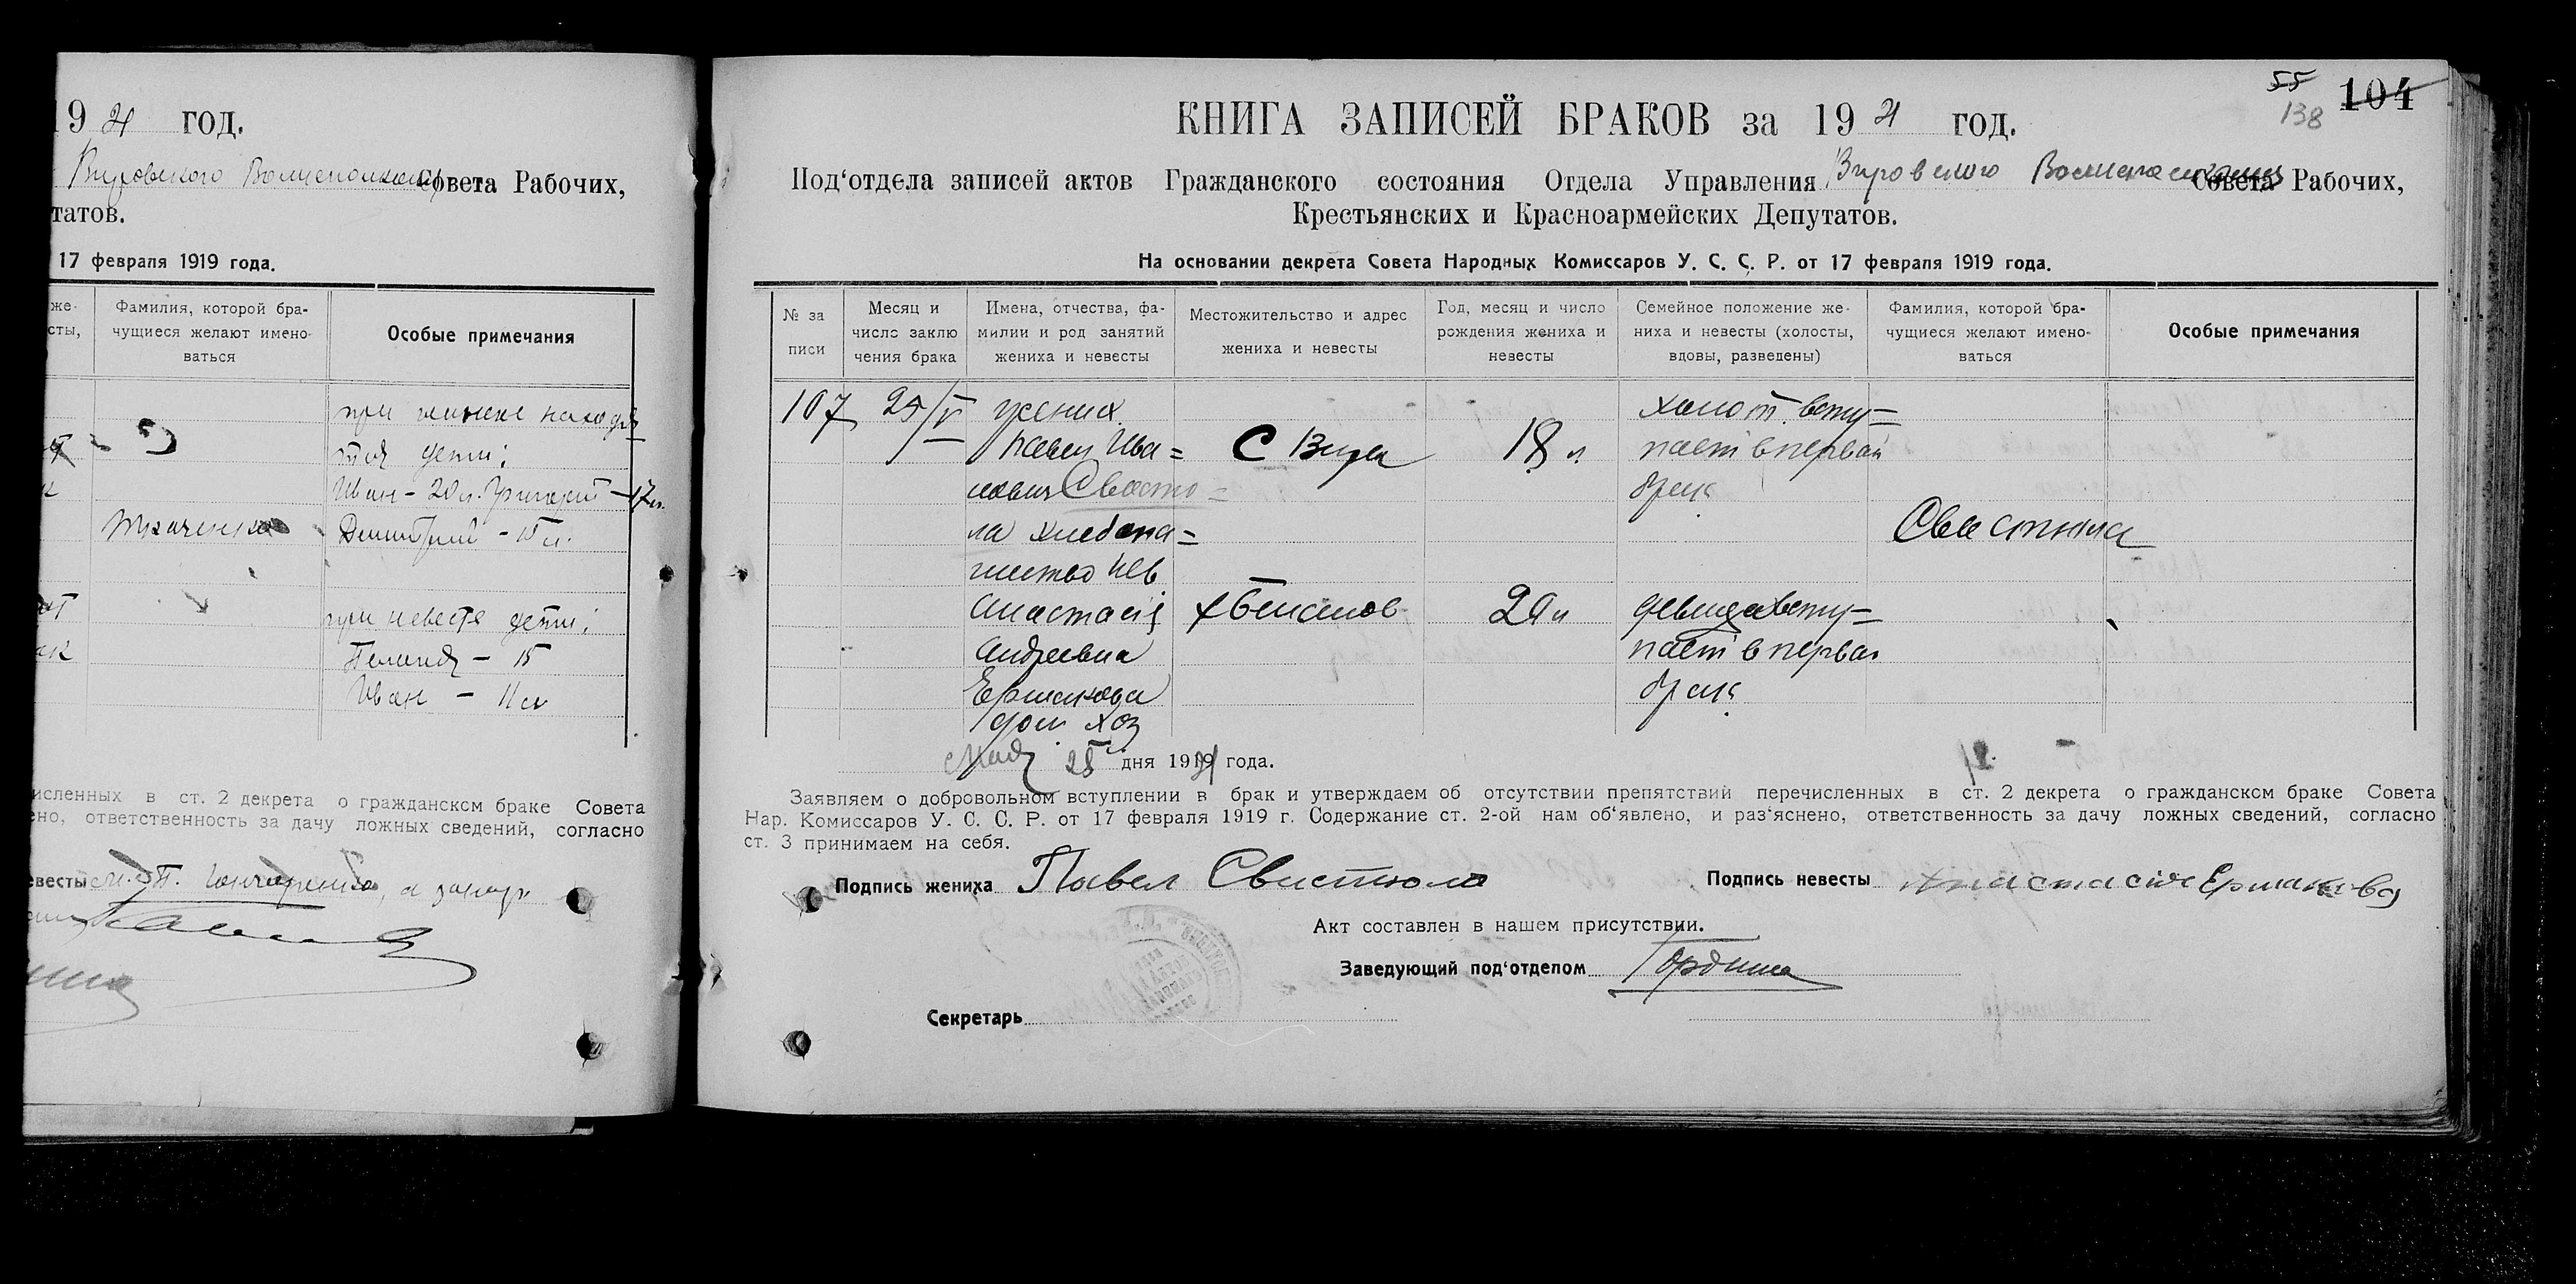 19 21 год.
Совета Рабочих,
татов.
17 февраля 1919 года.
же-
сты,
Фамилия, которой бра-
чущиеся желают имено-
ваться
Особые примечания
при женихе находя
тся дети:
Иван - 20 л. Григорий - 17 л.
Ткаченко
Димитрий - 15 л.
при невесте дети:
Пелагея - 15
Иван - 11 л
исленных в ст. 2 декрета о гражданском браке Совета
ено, ответственность за дачу ложных сведений, согласно
евесты
55 104
138
КНИГА ЗАПИСЕЙ БРАКОВ за 19 21 год.
Под‘отдела записей актов Гражданского состояния Отдела Управления Вировского Совета Рабочих,
Крестьянских и Красноармейских Депутатов.
На основании декрета Совета Народных Комиссаров У. С. С. Р. от 17 февраля 1919 года.
№ за
писи
Месяц и
число заклю
чения брака
Имена, отчества, фа-
милии и род занятий
жениха и невесты
Местожительство и адрес
жениха и невесты
Год, месяц и число
рождения жениха и
невесты
Семейное положение же-
ниха и невесты (холосты,
вдовы, разведены)
Фамилия, которой бра-
чущиеся желают имено-
ваться
Особые примечания
107
25/V
жених
Павел Ива=
нович Свистю=
ла хлебопа=
шество нев
Анастасія
Андреевна
Ермакова
дом хоз
С Вира
18 л.
холост. всту=
пает в первый
брак
Свистюла
20 л
девица всту=
пает в первый
брак
Мая 25 дня 1921 года.
Заявляем о добровольном вступлении в брак и утверждаем об отсутствии препятствий перечисленных в ст. 2 декрета о гражданском браке Совета
Нар. Комиссаров У. С. С. Р. от 17 февраля 1919 г. Содержание ст. 2-ой нам об‘явлено, и раз‘яснено, ответственность за дачу ложных сведений, согласно
ст. 3 принимаем на себя.
Подпись жениха Павел Свистюла
Подпись невесты Анастасия Ермакова
Акт составлен в нашем присутствии.
Заведующий под‘отделом
Секретарь